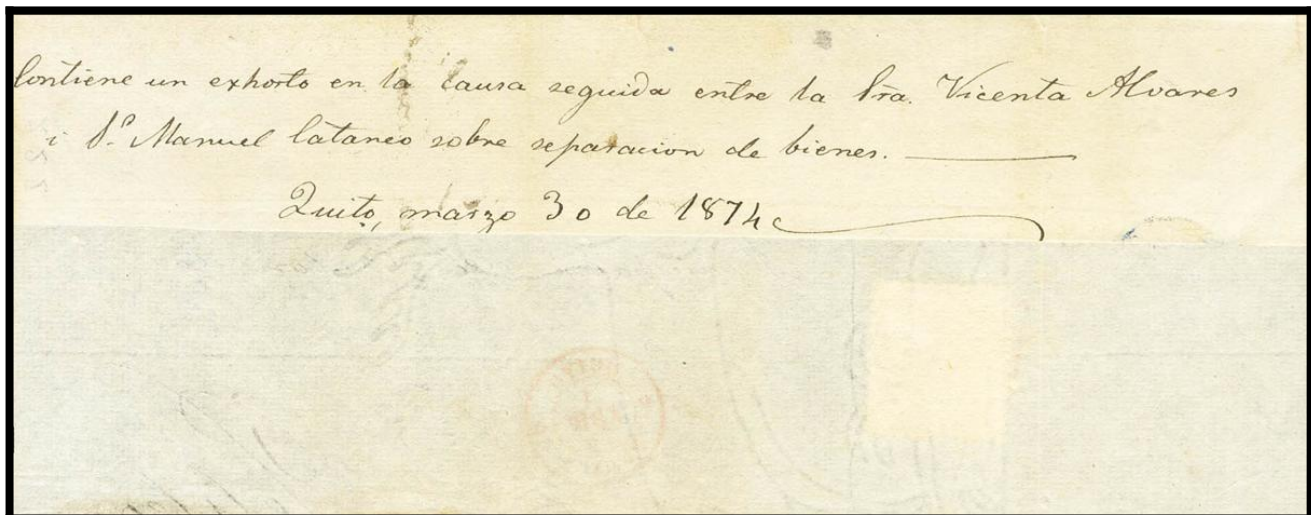 Contiene un exhorto en la causa seguida entre la Sra. Vicenta Alvares
i Sr. Manuel Cataneo sobre separacion de bienes.
Quito, marzo 30 de 1874